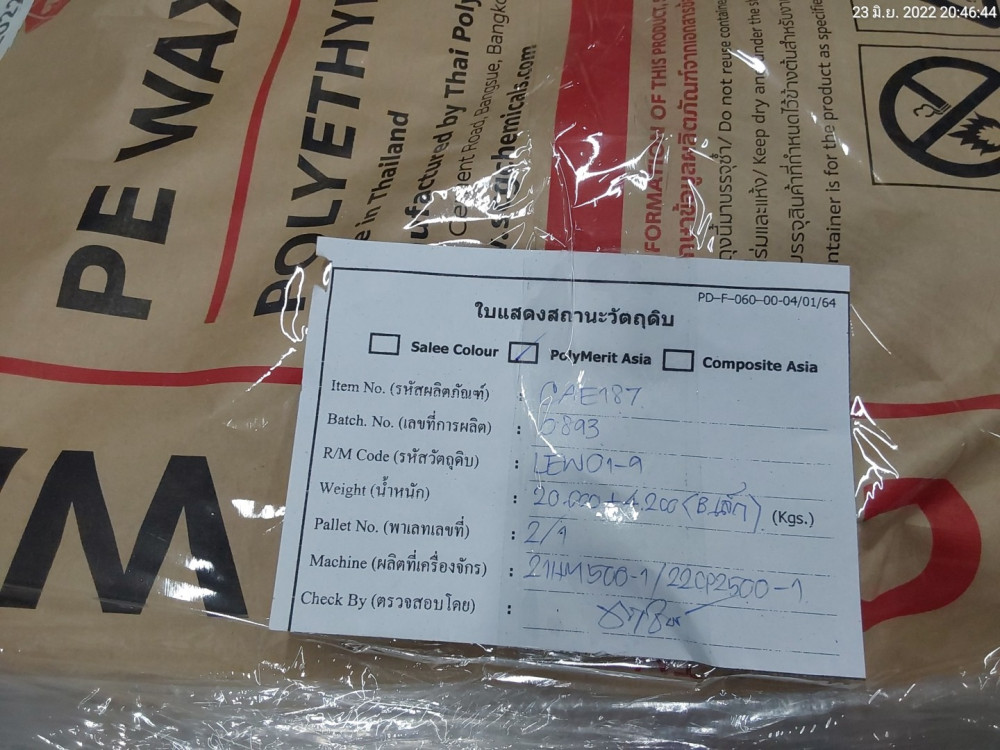 23 มิ.ย. 2022 20:46:44
PE WAX
POLYETHY
e in Thailand
ufactured by Thai Poly
Cement Road, Bangsue, Bangko
chemicals.com
FORMATION OF THIS PRODUCT,
ษาข้อมูลผลิตภัณฑ์จากเอกสาร
ถุงนี้มาบรรจุซ้ำ/ Do not reuse container
ร่มและแห้ง/ Keep dry and under the
บรรจุสินค้าที่กำหนดไว้ข้างต้นสำหรับ
ntainer is for the product as specifie
PD-F-060-00-04/01/64
ใบแสดงสถานะวัตถุดิบ
Salee Colour PolyMerit Asia Composite Asia
Item No. (รหัสผลิตภัณฑ์) : CAE187
Batch. No. (เลขที่การผลิต) : 6893
R/M Code (รหัสวัตถุดิบ) : LEW01-9
Weight (น้ำหนัก) : 20.000+4.200 (Bเล็ก) (Kgs.)
Pallet No. (พาเลทเลขที่) : 2/1
Machine (ผลิตที่เครื่องจักร) : 21HM500-1/22CP2500-1
Check By (ตรวจสอบโดย) :